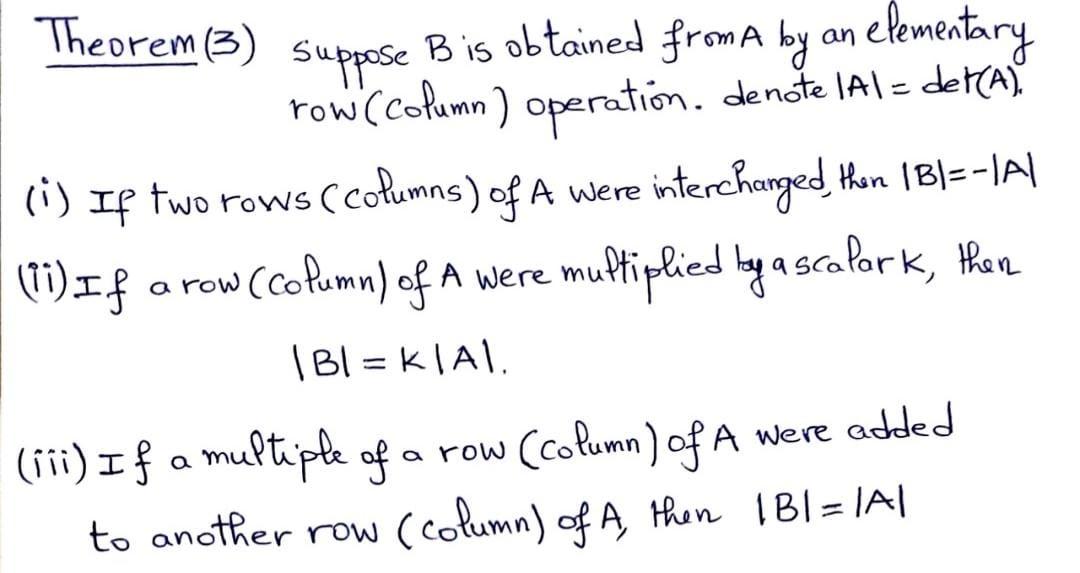 Theorem (3) Suppose B is obtained from A by an elementary
row (column) operation. denote |A| = det(A).
(i) If two rows (columns) of A were interchanged, then |B|=-|A|
(ii) If a row (column) of A were multiplied by a scalar k, then
|B| = k|A|.
(iii) If a multiple of a row (column) of A were added
to another row (column) of A, then |B| = |A|